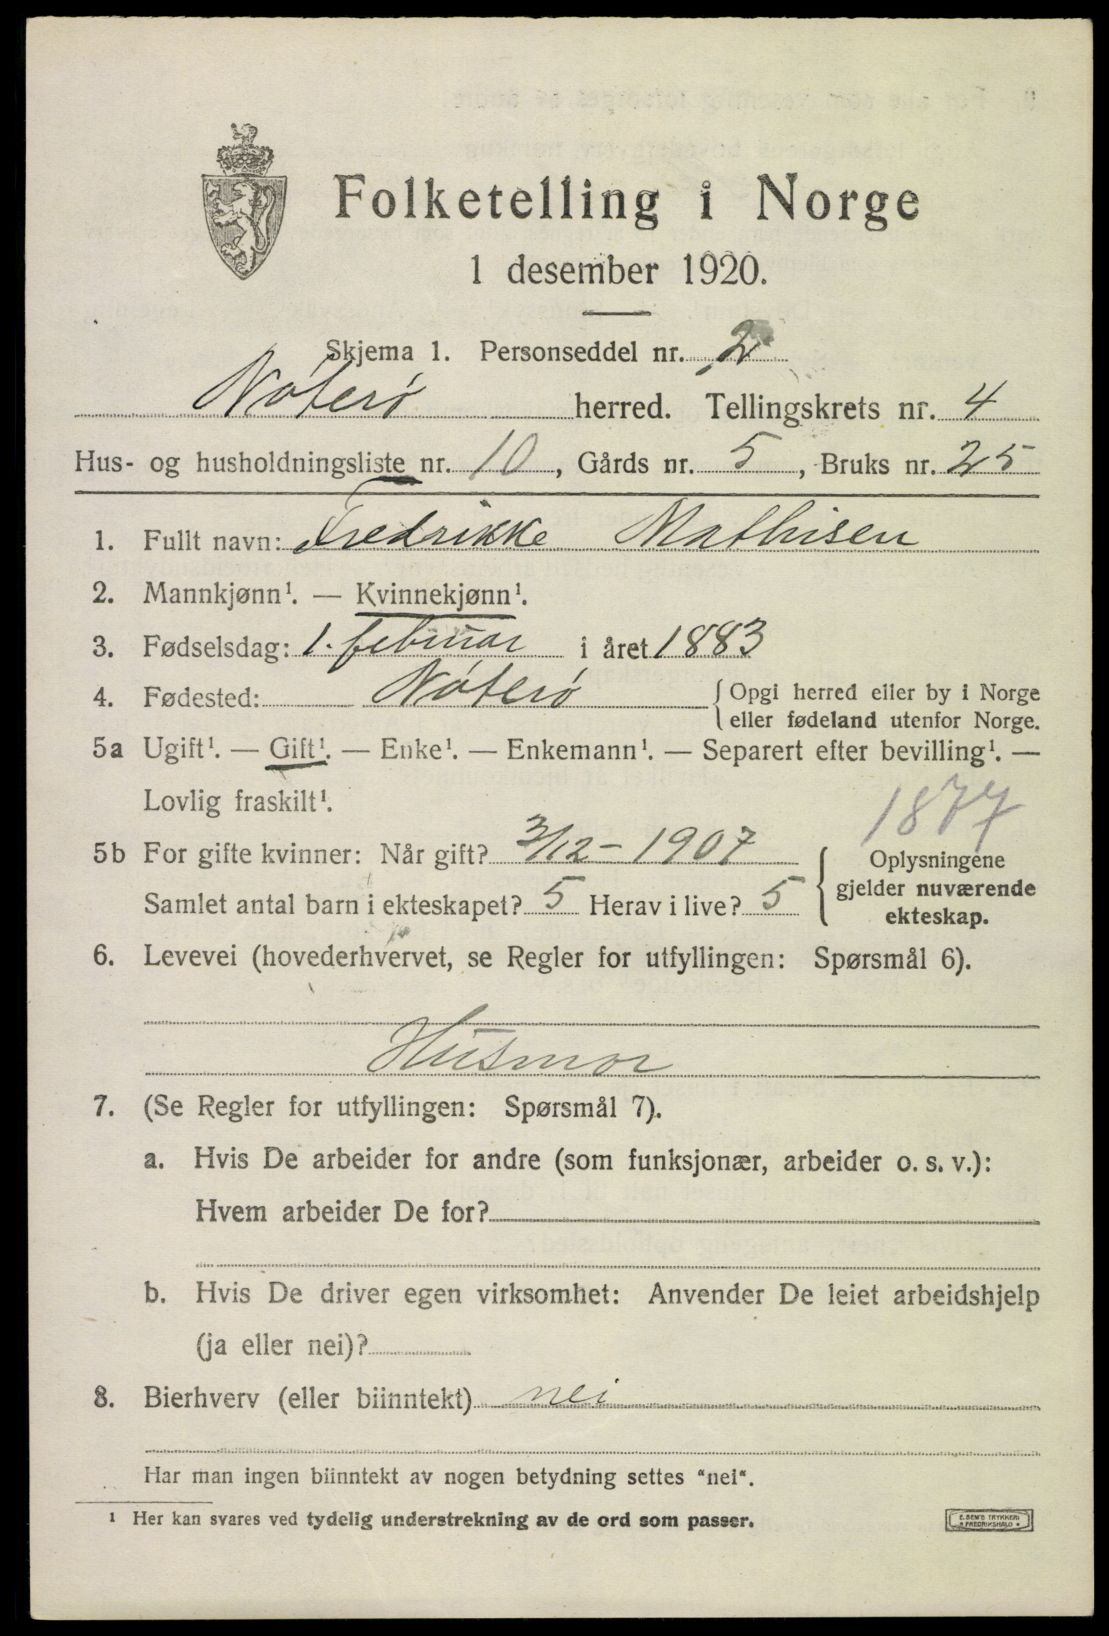 Folketelling i Norge
1 desember 1920.
Skjema 1. Personseddel nr. 2
Nøterø herred. Tellingskrets nr. 4
Hus- og husholdningsliste nr. 10, Gårds nr. 5, Bruks nr. 25
1. Fullt navn: Fredrikke Mathisen
2. Mannkjønn¹. — Kvinnekjønn¹.
3. Fødselsdag: 1. februar i året 1883
4. Fødested: Nøterø { Opgi herred eller by i Norge
eller fødeland utenfor Norge.
5a Ugift¹. — Gift¹. — Enke¹. — Enkemann¹. — Separert efter bevilling¹. —
Lovlig fraskilt¹.
1877
5b For gifte kvinner: Når gift? 3/12 - 1907
Samlet antal barn i ekteskapet? 5 Herav i live? 5
{ Oplysningene
gjelder nuværende
ekteskap.
6. Levevei (hovederhvervet, se Regler for utfyllingen: Spørsmål 6).
Husmor
7. (Se Regler for utfyllingen: Spørsmål 7).
a. Hvis De arbeider for andre (som funksjonær, arbeider o. s. v.):
Hvem arbeider De for?
b. Hvis De driver egen virksomhet: Anvender De leiet arbeidshjelp
(ja eller nei)?
8. Bierhverv (eller biinntekt) nei
Har man ingen biinntekt av nogen betydning settes "nei".
¹ Her kan svares ved tydelig understrekning av de ord som passer.
E. SEM'S TRYKKERI
FREDRIKSHALD